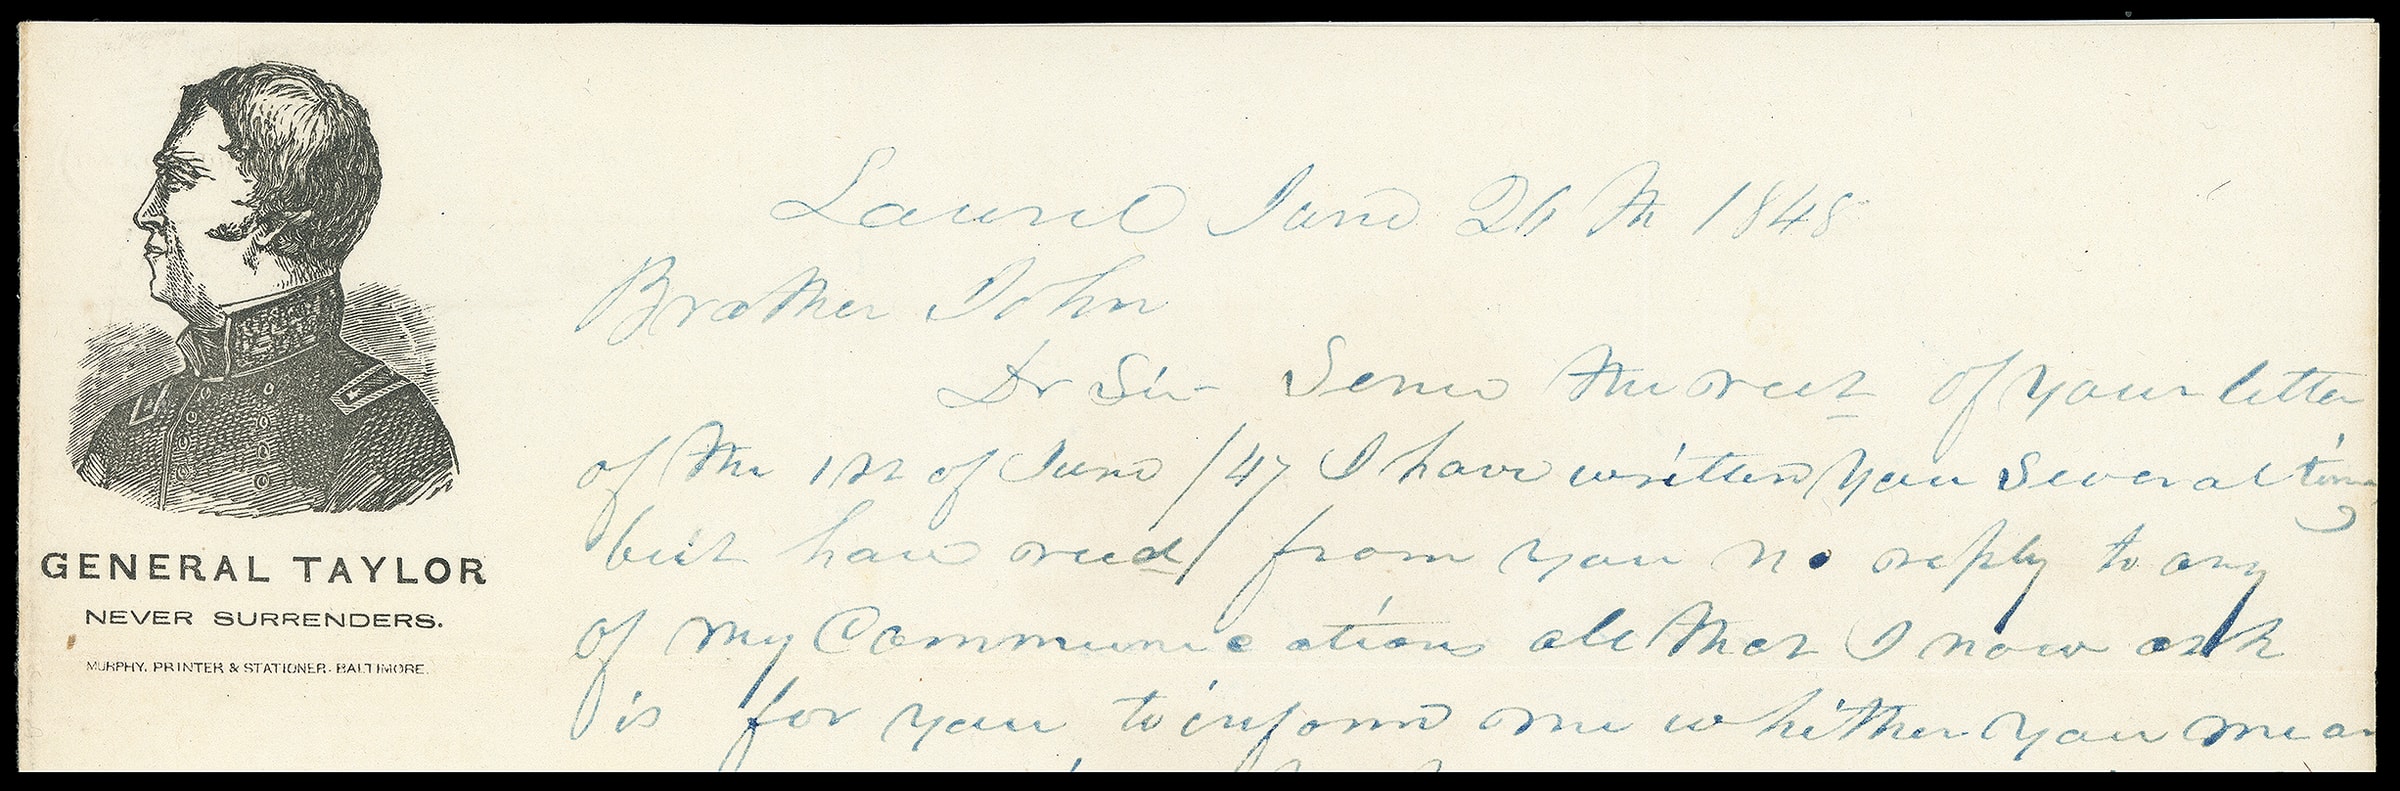 GENERAL TAYLOR
NEVER SURRENDERS.
MURPHY, PRINTER & STATIONER. BALTIMORE.
Laurel June 26 th 1848
Brother John
Dr Sir Since the rect of your letter
of the 1st of June /47 I have written you several times
but have recd / from you no reply to any
of my Communications all that I now ask
is for you to inform me whither you mean